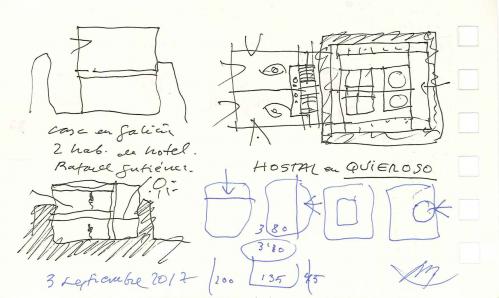 casa en Galicia
2 hab. de hotel.
Rafael Gutiérrez.
HOSTAL en QUIEROSO
3'80
3'80
3 septiembre 2017
200
135
45